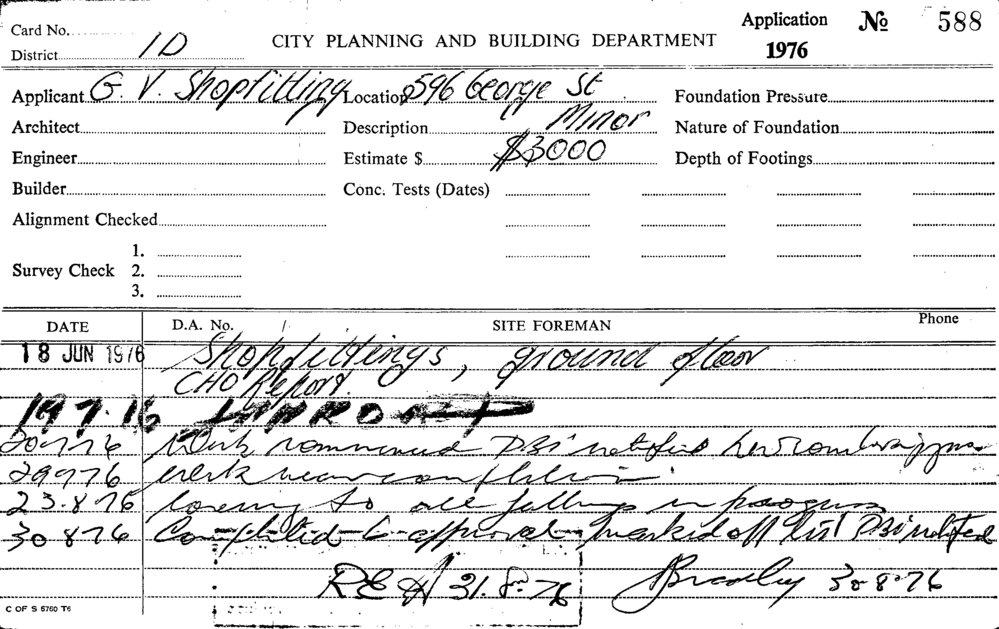 Card No.
District 1D
CITY PLANNING AND BUILDING DEPARTMENT
Application № 588
1976
Applicant G. V. Shopfitting Location 596 George St Foundation Pressure
Architect Description Minor Nature of Foundation
Engineer Estimate $ $3000 Depth of Footings
Builder Conc. Tests (Dates)
Alignment Checked
1.
Survey Check 2.
3.
DATE D.A. No. SITE FOREMAN Phone
18 JUN 1976 Shopfittings, ground floor
CHO Report.
19.7.76
20776 Work commenced DBI notified
29776 work near completion
23.8.76 to all in progress
30876 Completed to approval marked off list DBI notified
31.8.76 Bradley 30.8.76
C OF S 6760 T6